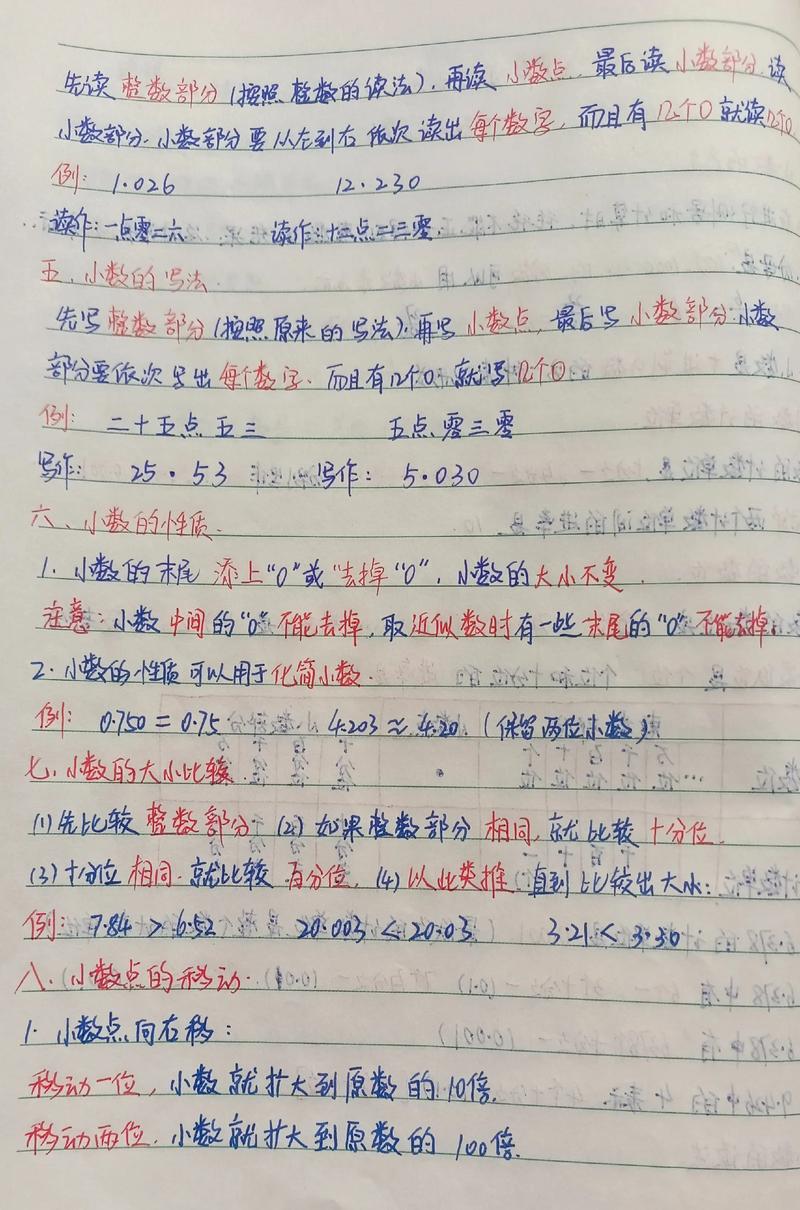 先读整数部分(按照整数的读法),再读小数点,最后读小数部分.读
小数部分.小数部分要从左到右依次读出每个数字,而且有几个0就读几个0
例: 1.026 12.230
读作:一点零二六 读作:十二点二三零.
五、小数的写法.
先写整数部分(按照原来的写法),再写小数点,最后写小数部分.小数
部分要依次写出每个数字.而且有几个0,就写几个0
例: 二十五点五三 五点零三零
写作: 25.53 写作: 5.030
六、小数的性质.
1. 小数的末尾添上"0"或"去掉"0",小数的大小不变.
注意:小数中间的"0"不能去掉,取近似数时有一些末尾的"0"不能去掉.
2.小数的性质可以用于化简小数.
例: 0.750=0.75 4.203≈4.20 (保留两位小数)
七.小数的大小比较.
(1)先比较整数部分 (2)如果整数部分相同,就比较十分位.
(3)十分位相同.就比较百分位. (4)以此类推 直到比较出大小:
例: 7.84 > 6.52 20.003 < 20.03 3.21 < 3.30
八.小数点的移动.
1. 小数点向右移:
移动一位,小数就扩大到原数的10倍.
移动两位.小数就扩大到原数的 100倍.